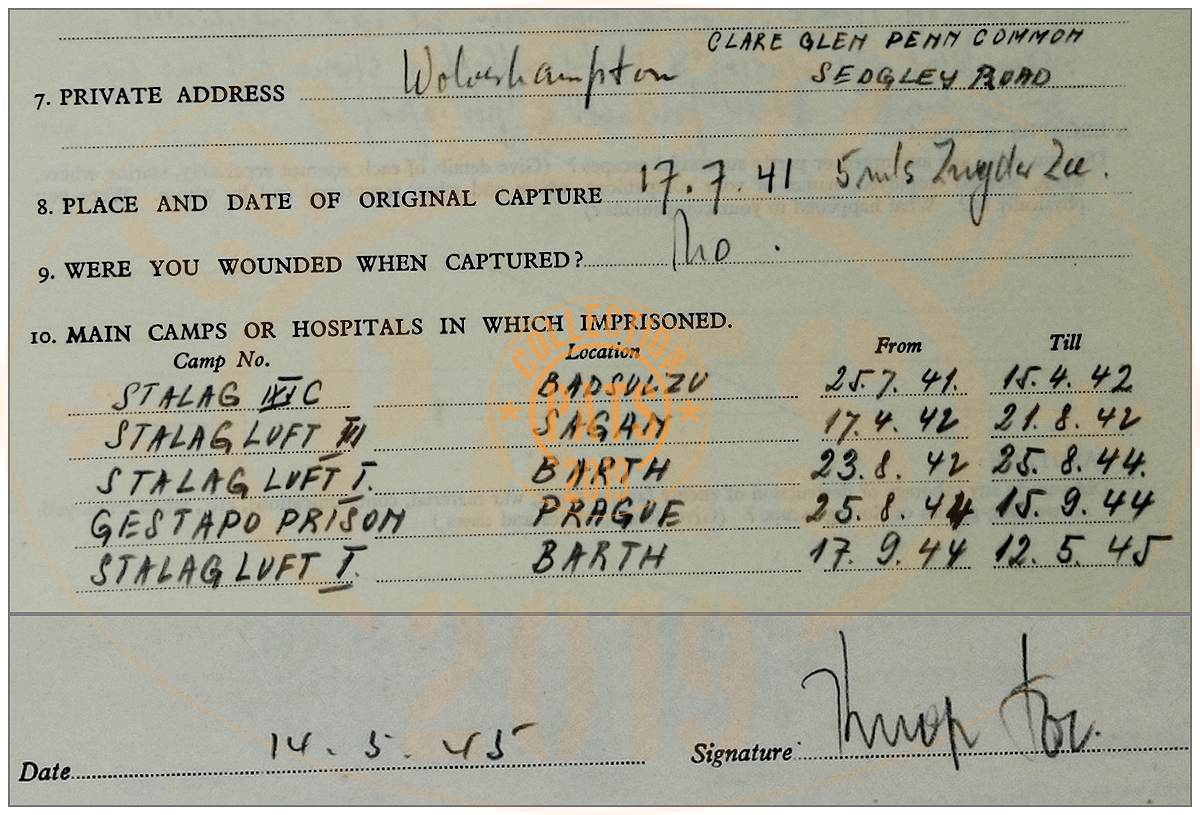 CLARE GLEN PENN COMMON
7. PRIVATE ADDRESS Wolverhampton SEDGLEY ROAD
8. PLACE AND DATE OF ORIGINAL CAPTURE 17.7.41 5 mls Zuyder Zee.
9. WERE YOU WOUNDED WHEN CAPTURED? No.
10. MAIN CAMPS OR HOSPITALS IN WHICH IMPRISONED.
Camp No. Location From Till
STALAG IXC BADSULZU 25.7.41. 15.4.42
STALAG LUFT III SAGAN 17.4.42 21.8.42
STALAG LUFT I. BARTH 23.8.42 25.8.44.
GESTAPO PRISON PRAGUE 25.8.44 15.9.44
STALAG LUFT I. BARTH 17.9.44 12.5.45
COLLECTION
2019
Date 14.5.45 Signature